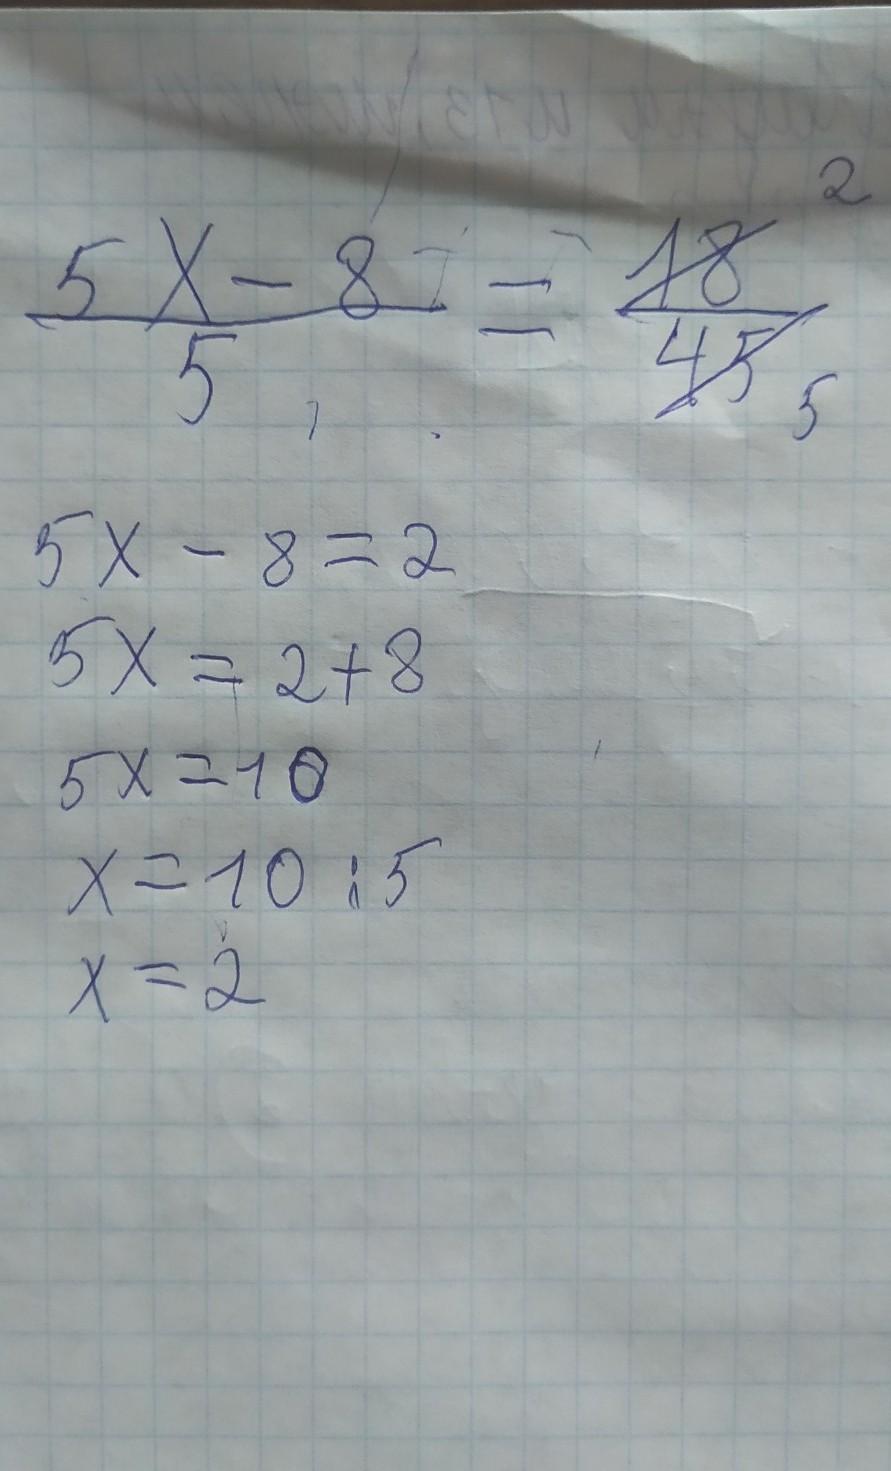 2
5x - 8 = 18
5 45 5
5x - 8 = 2
5x = 2+8
5x = 10
x = 10 : 5
x = 2